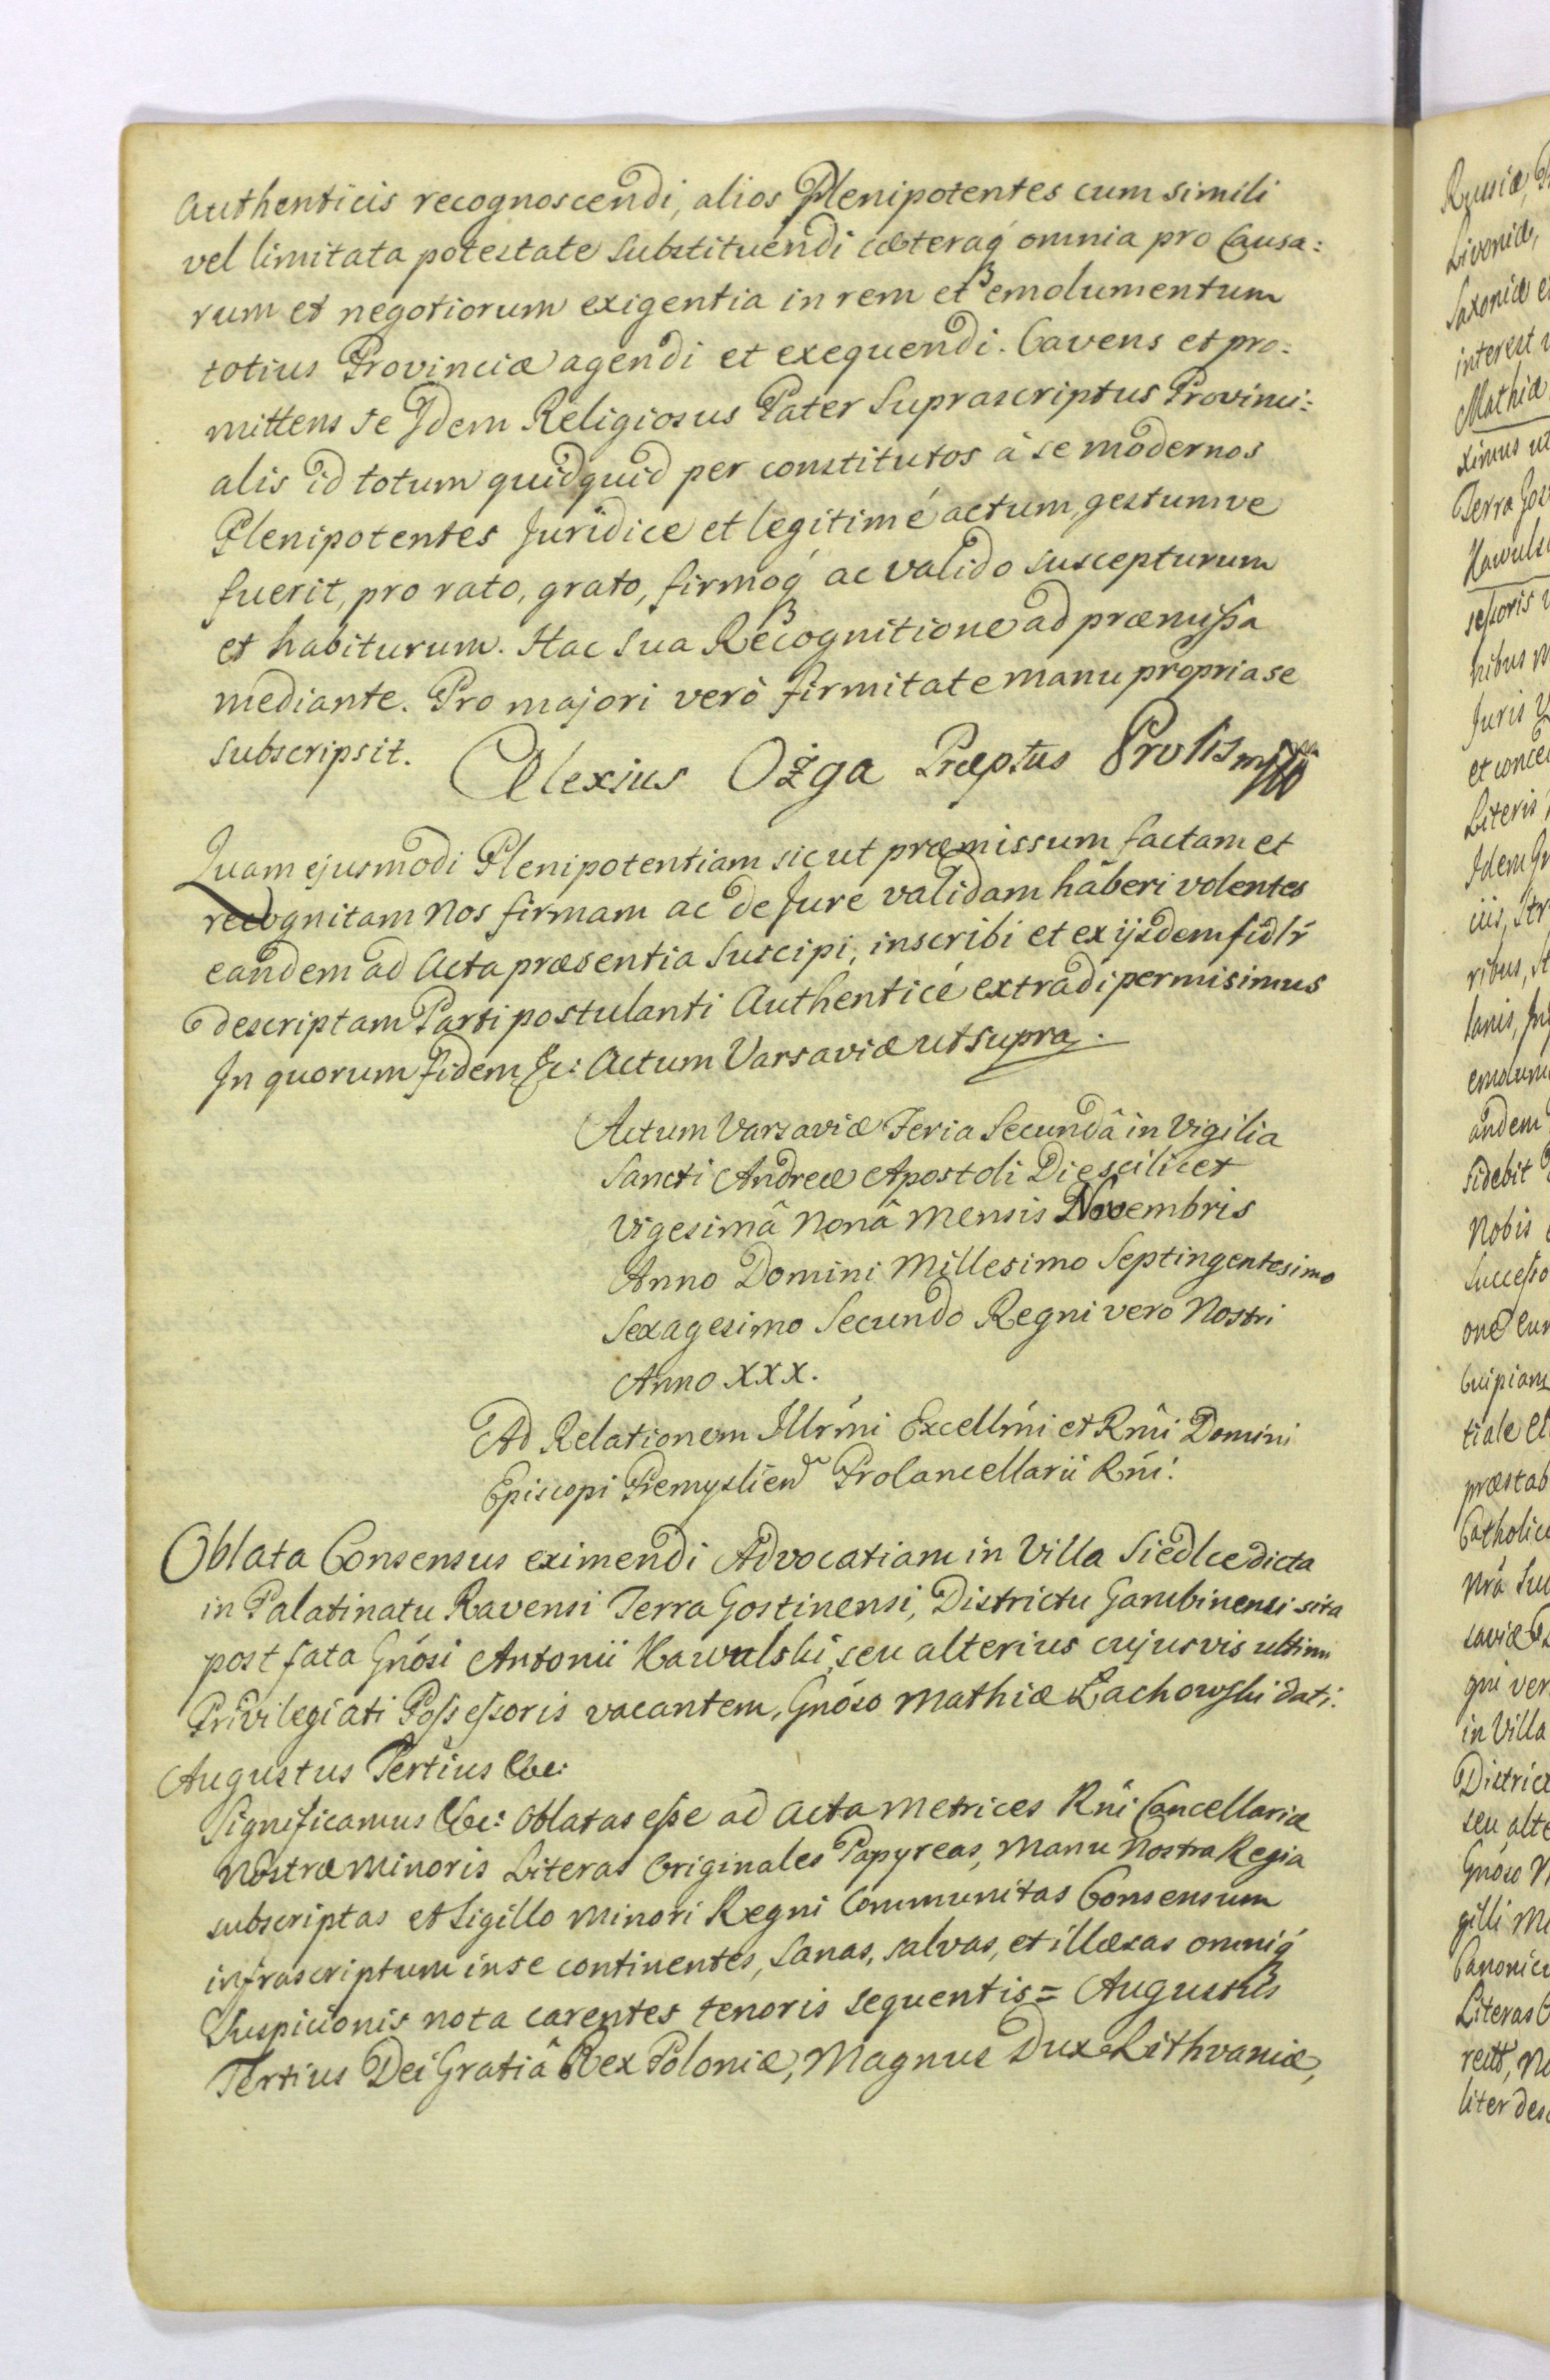 Authenticis recognoscendi, alios Plenipotentes cum simili
vel limitata potestate substituendi cæteraq́ omnia pro Causa:
rum et negotiorum exigentia in rem et emolumentum
totius Provinciæ agendi et exequendi. Cavens et pro:
mittens se Jdem Religiosus Pater Suprascriptus Provinci:
alis id totum quidquid per constitutos à se modernos
Plenipotentes Juridice et legitimé actum, gestumve
fuerit, pro rato, grato, firmoq́ ac valido suscepturum
et habiturum. Hac sua Recognitione ad præmissa
mediante. Pro majori verò firmitate manu propria se
subscripsit. Alexius Ożga Præptus
Quam ejusmodi Plenipotentiam sic ut præmissum factam et
recognitam Nos firmam ac de Jure validam haberi volentes
eandem ad Acta præsentia suscipi, inscribi et ex ijsdem fidlr̃
descriptam Parti postulanti Authenticé extradi permisimus
In quorum fidem &c: Actum Varsaviæ ut supra.
Actum Varsaviæ Feria Secundâ in Vigilia
Sancti Andreæ Apostoli Die scilicet
Vigesimâ Nonâ Mensis Novembris
Anno Domini Millesimo Septingentesimo
Sexagesimo Secundo Regni vero Nostri
Anno XXX.
Ad Relationem Jllr̃mi Excellm̃i et Rm̃i Domini
Episcopi Premyslien̄ Procancellarii Rñi.
Oblata Consensus eximendi Advocatiam in Villa Siedlce dicta
in Palatinatu Ravensi Terra Gostinensi, Districtu Gambinensi sita
post fata Gnósi Antonii Kawulski, seu alterius cujusvis ultimi
Privilegiati Possessoris vacantem, Gnóso Mathiæ Łachowski dati.
Augustus Tertius &c:
Significamus &c: Oblatas esse ad Acta Metrices Rñi Cancellariæ
Nostræ Minoris Literas Originales Papyreas, Manu Nostra Regia
subscriptas et Sigillo Minori Regni Communitas Consensum
infrascriptum in se continentes, sanas, salvas, et illæsas omniq́
Suspicionis nota carentes tenoris sequentis = Augustus
Tertius Dei Gratiâ Rex Poloniæ, Magnus Dux Lithvaniæ,